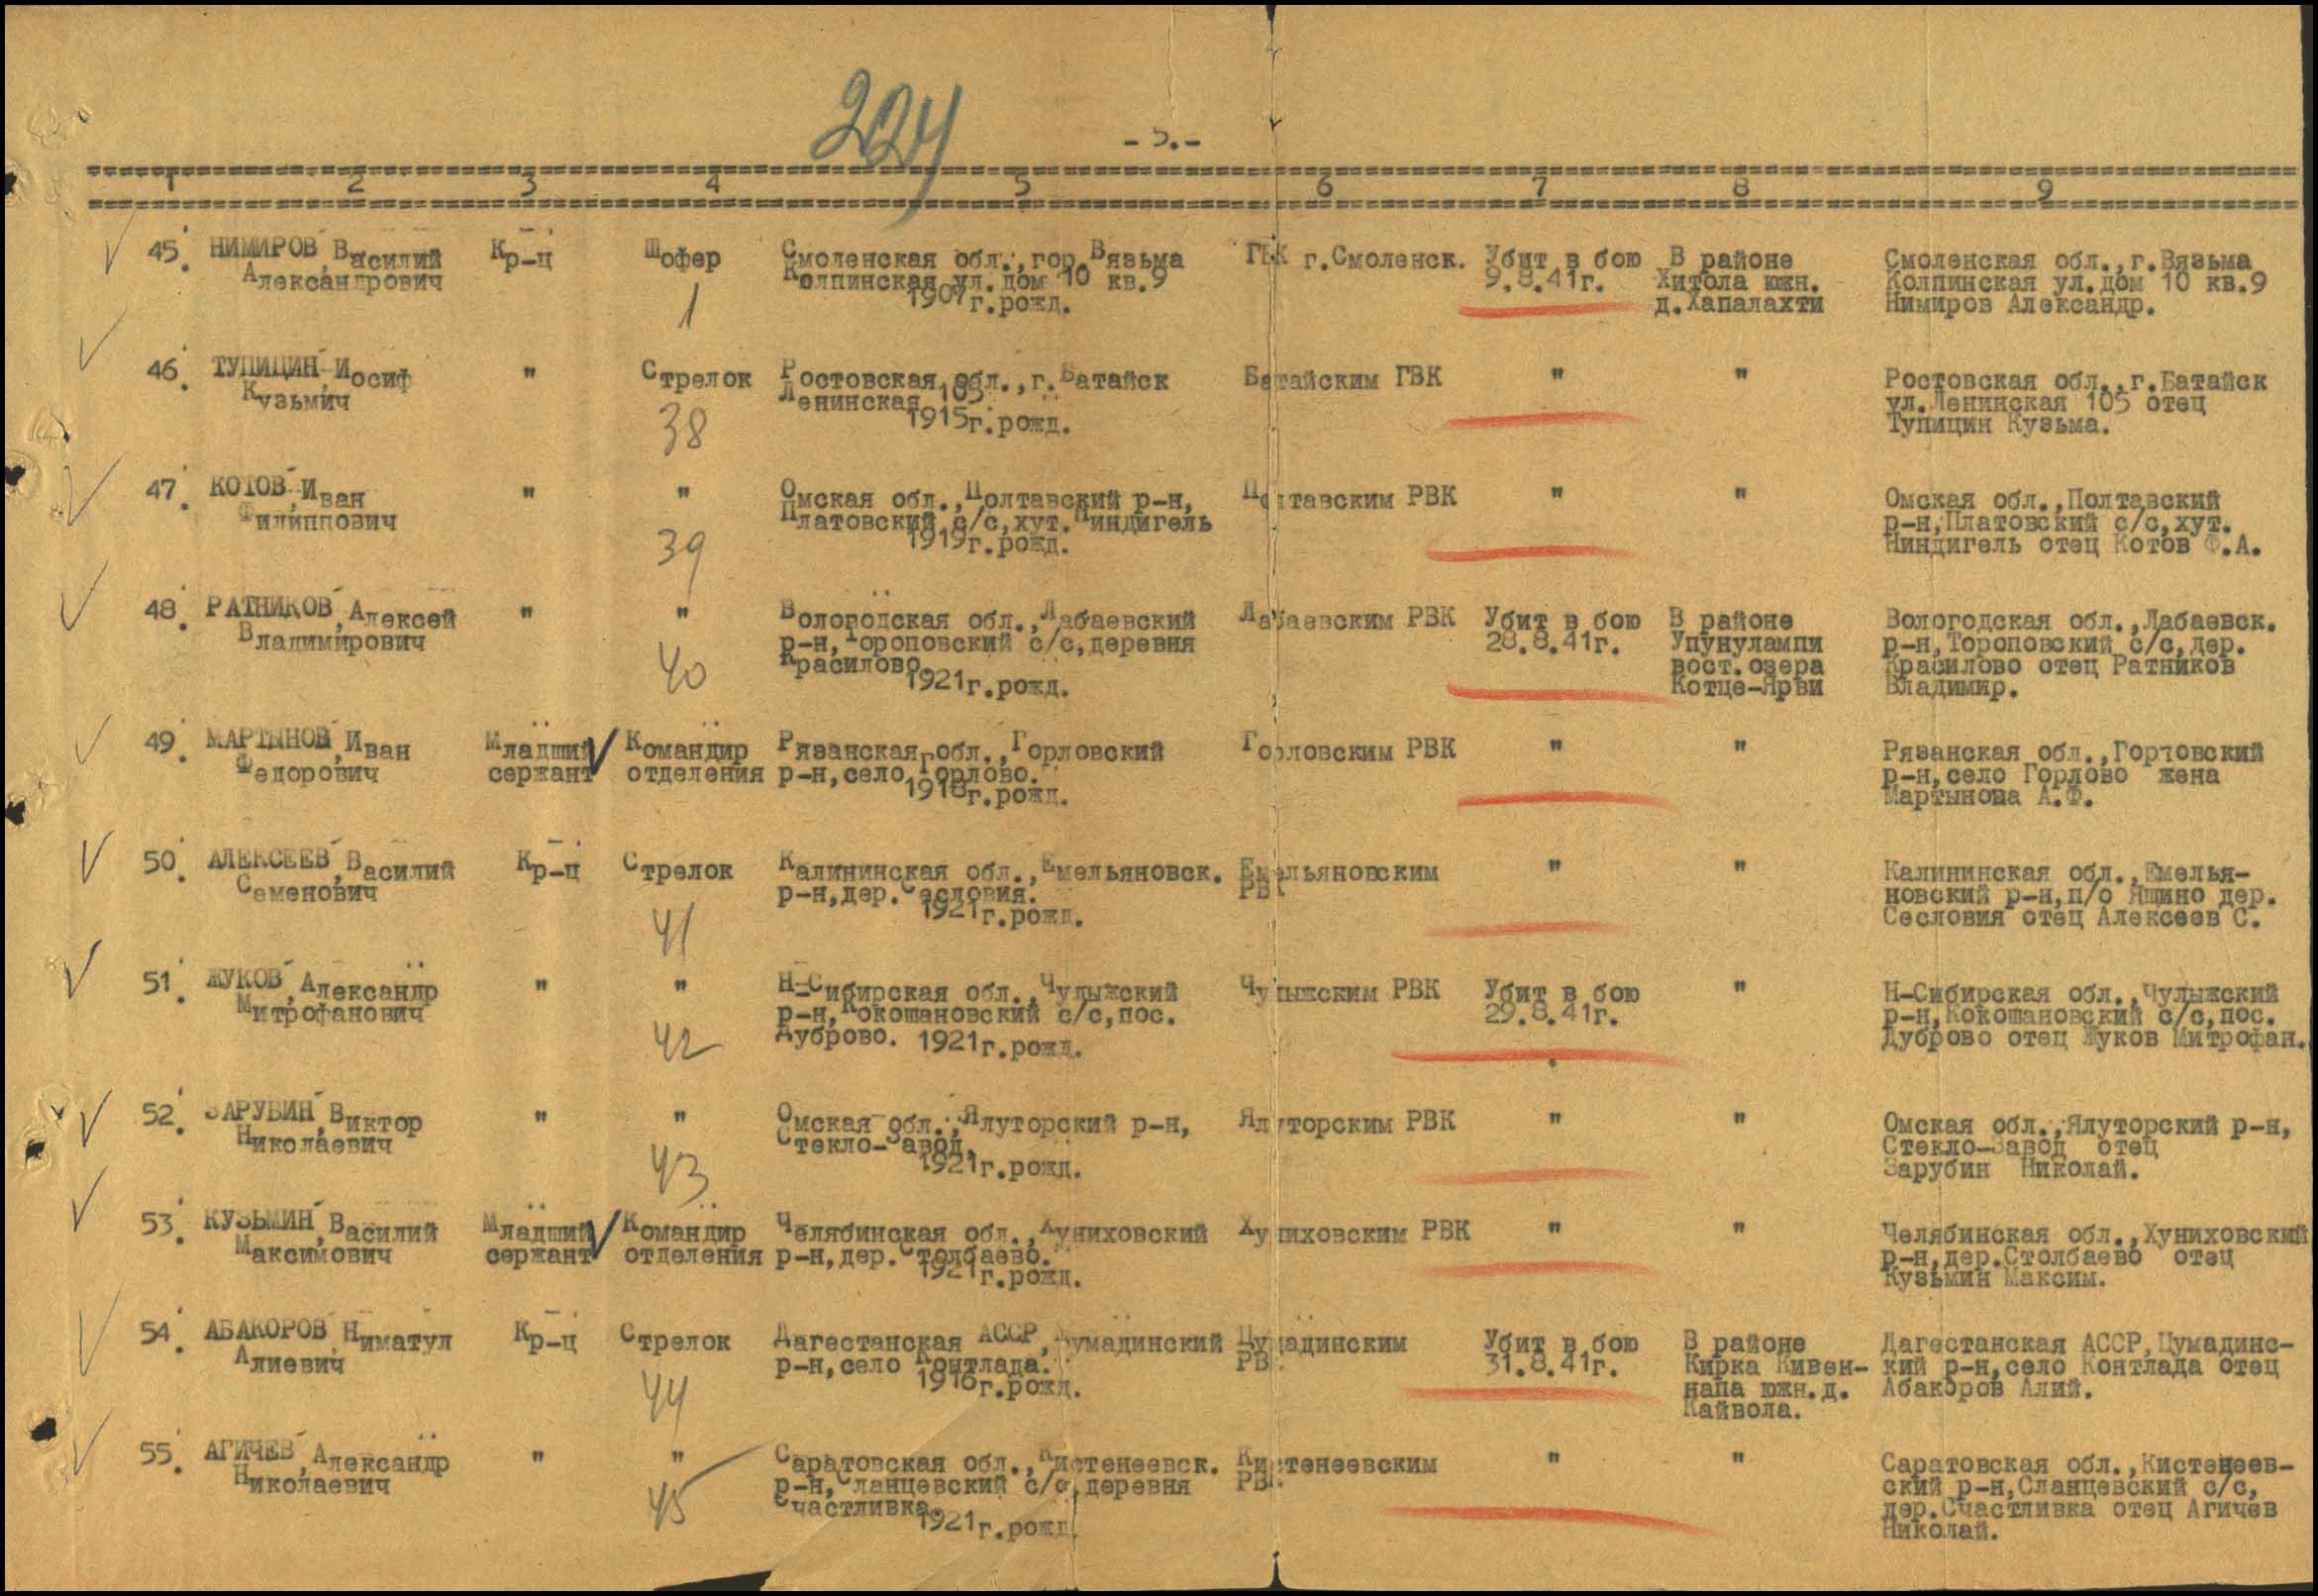 224
- 5.-
1 2 3 4 5 6 7 8 9
45. НИМИРОВ Василий Кр-ц Шофер Смоленская обл.,гор.Вязьма ГВК г.Смоленск. Убит в бою В районе Смоленская обл.,г.Вязьма
Александрович Колпинская ул.дом 10 кв.9 9.8.41г. Хитола южн. Колпинская ул.дом 10 кв.9
1 1907г.рожд. д.Хапалахти Нимиров Александр.
46. ТУПИЦИН Иосиф " Стрелок Ростовская обл.,г.Батайск Батайским ГВК " " Ростовская обл.,г.Батайск
Кузьмич Ленинская 105 ул.Ленинская 105 отец
38 1915г.рожд. Тупицин Кузьма.
47. КОТОВ Иван " " Омская обл.,Полтавский р-н, Полтавским РВК " " Омская обл.,Полтавский
Филиппович Платовский с/с,хут.Ниндигель р-н,Платовский с/с,хут.
39 1919г.рожд. Ниндигель отец Котов Ф.А.
48. РАТНИКОВ Алексей " " Вологодская обл.,Лабаевский Лабаевским РВК Убит в бою В районе Вологодская обл.,Лабаевск.
Владимирович р-н,Тороповский с/с,деревня 28.8.41г. Упунулампи р-н,Тороповский с/с,дер.
40 Красилово. вост.озера Красилово отец Ратников
1921г.рожд. Котце-Ярви Владимир.
49. МАРТЫНОВ Иван Младший Командир Рязанская обл.,Горловский Горловским РВК " " Рязанская обл.,Горловский
Федорович сержант отделения р-н,село Горлово. р-н,село Горлово жена
1918г.рожд. Мартынова А.Ф.
50. АЛЕКСЕЕВ Василий Кр-ц Стрелок Калининская обл.,Емельяновск. Емельяновским " " Калининская обл.,Емелья-
Семенович р-н,дер.Сесловия. РВК новский р-н,п/о Ящино дер.
41 1921г.рожд. Сесловия отец Алексеев С.
51. ЖУКОВ Александр " " Н-Сибирская обл.,Чулыжский Чулыжским РВК Убит в бою " Н-Сибирская обл.,Чулыжский
Митрофанович р-н,Кокошановский с/с,пос. 29.8.41г. р-н,Кокошановский с/с,пос.
42 Дуброво. 1921г.рожд. Дуброво отец Жуков Митрофан.
52. ЗАРУБИН Виктор " " Омская обл.,Ялуторский р-н, Ялуторским РВК " " Омская обл.,Ялуторский р-н,
Николаевич Стекло-Завод, Стекло-Завод отец
43 1921г.рожд. Зарубин Николай.
53. КУЗЬМИН Василий Младший Командир Челябинская обл.,Хуниховский Хуниховским РВК " " Челябинская обл.,Хуниховский
Максимович сержант отделения р-н,дер.Столбаево. р-н,дер.Столбаево отец
1921г.рожд. Кузьмин Максим.
54. АБАКОРОВ Ниматул Кр-ц Стрелок Дагестанская АССР,Цумадинский Цумадинским Убит в бою В районе Дагестанская АССР,Цумадинс-
Алиевич р-н,село Контлада. РВК 31.8.41г. Кирка Кивен- кий р-н,село Контлада отец
44 1916г.рожд. напа южн.д. Абакоров Алий.
Кайвола.
55. АГИЧЕВ Александр " " Саратовская обл.,Кистенеевск. Кистенеевским " " Саратовская обл.,Кистенеев-
Николаевич р-н,Сланцевский с/с,деревня РВК ский р-н,Сланцевский с/с,
45 Счастливка. дер.Счастливка отец Агичев
1921г.рожд. Николай.